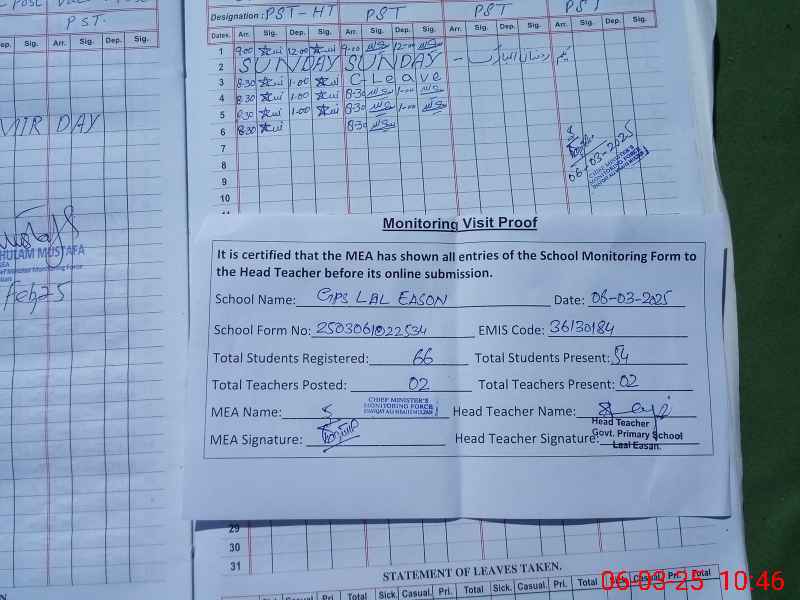 PST.
Dep. Sig. Arr. Sig. Dep. Sig.
DAY
HULAM MUSTAFA
Designation: PST-HT PST PST PST
Dates. Arr. Sig. Dep. Sig. Arr. Sig. Dep. Sig. Arr. Sig. Dep. Sig. Arr. Sig. Dep. Sig.
1 9:00 12:00 9:00 12:00
2 SUNDAY SUNDAY
3 8:30 1:00 C-Leave
4 8:30 1:00 8:30 1:00
5 8:30 1:00 8:30 1:00
6 8:30 8:30
7
8
9
10
06-03-2025
CHIEF MINISTER'S
MONITORING FORCE
Monitoring Visit Proof
It is certified that the MEA has shown all entries of the School Monitoring Form to
the Head Teacher before its online submission.
School Name: GPS LAL EASON Date: 06-03-2025
School Form No: 2503061022534 EMIS Code: 36130184
Total Students Registered: 66 Total Students Present: 54
Total Teachers Posted: 02 Total Teachers Present: 02
MEA Name: CHIEF MINISTER'S MONITORING FORCE Head Teacher Name:
MEA Signature: Head Teacher Signature:
Head Teacher
Govt. Primary School
Laal Easan.
29
30
31
STATEMENT OF LEAVES TAKEN.
Sick. Casual. Pri. Total Sick. Casual. Pri. Total Sick. Casual. Pri. Total
06-03-25 10:46